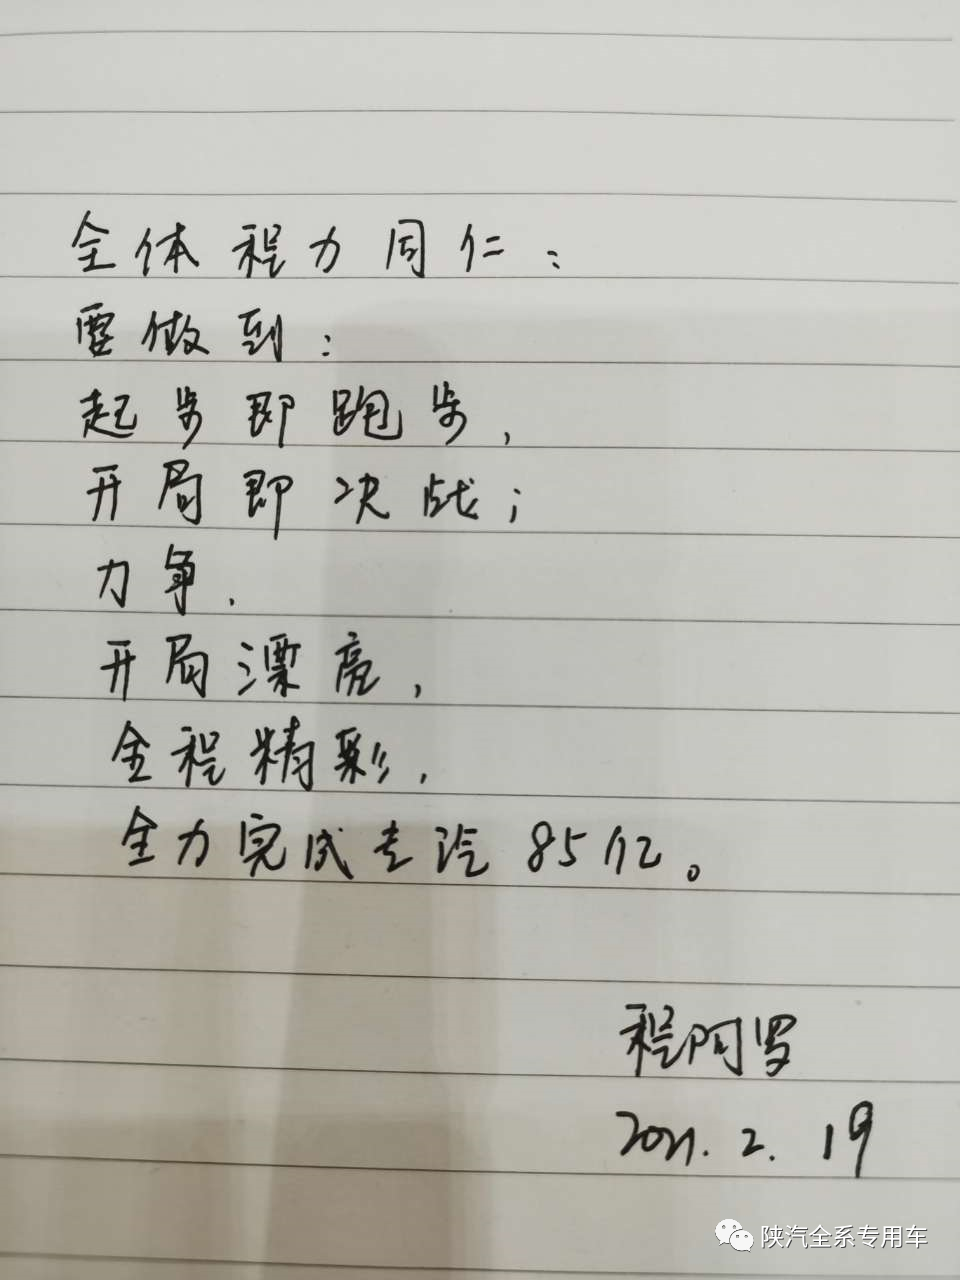 全体程力同仁：
要做到：
起步即跑步，
开局即决战；
力争，
开局漂亮，
全程精彩，
全力完成专汽85亿。
程阿罗
2021.2.19
陕汽全系专用车